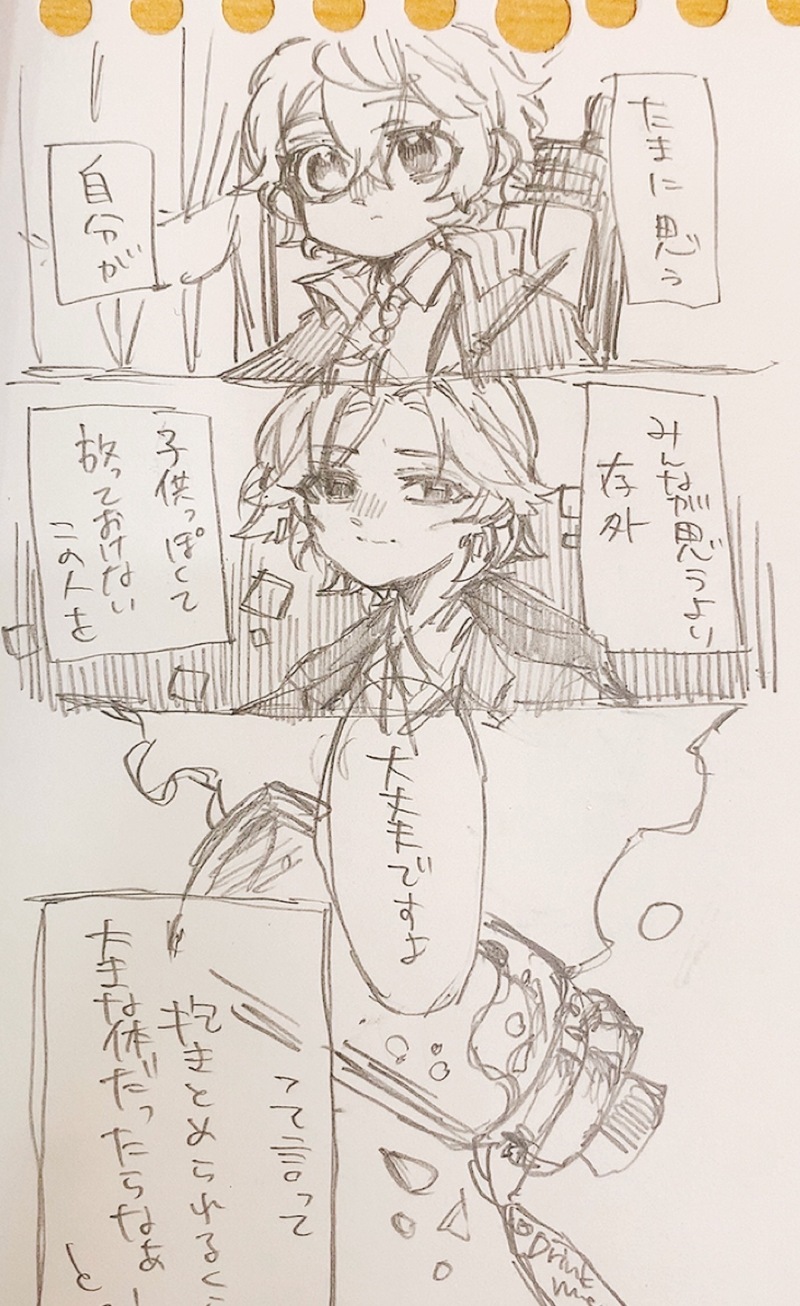 たまに思う
自分が
みんなが思うより
存外
子供っぽくて
放っておけない
この人を
大丈夫ですよ
って言って
抱きとめられるくら
大きな体だったらなぁー
と
Drink
me